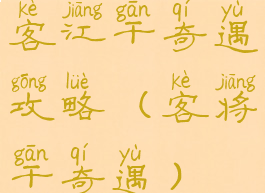 kè jiāng gān qí yù
客江干奇遇
gōng lüè kè jiāng
攻略（客将
gān qí yù
干奇遇）